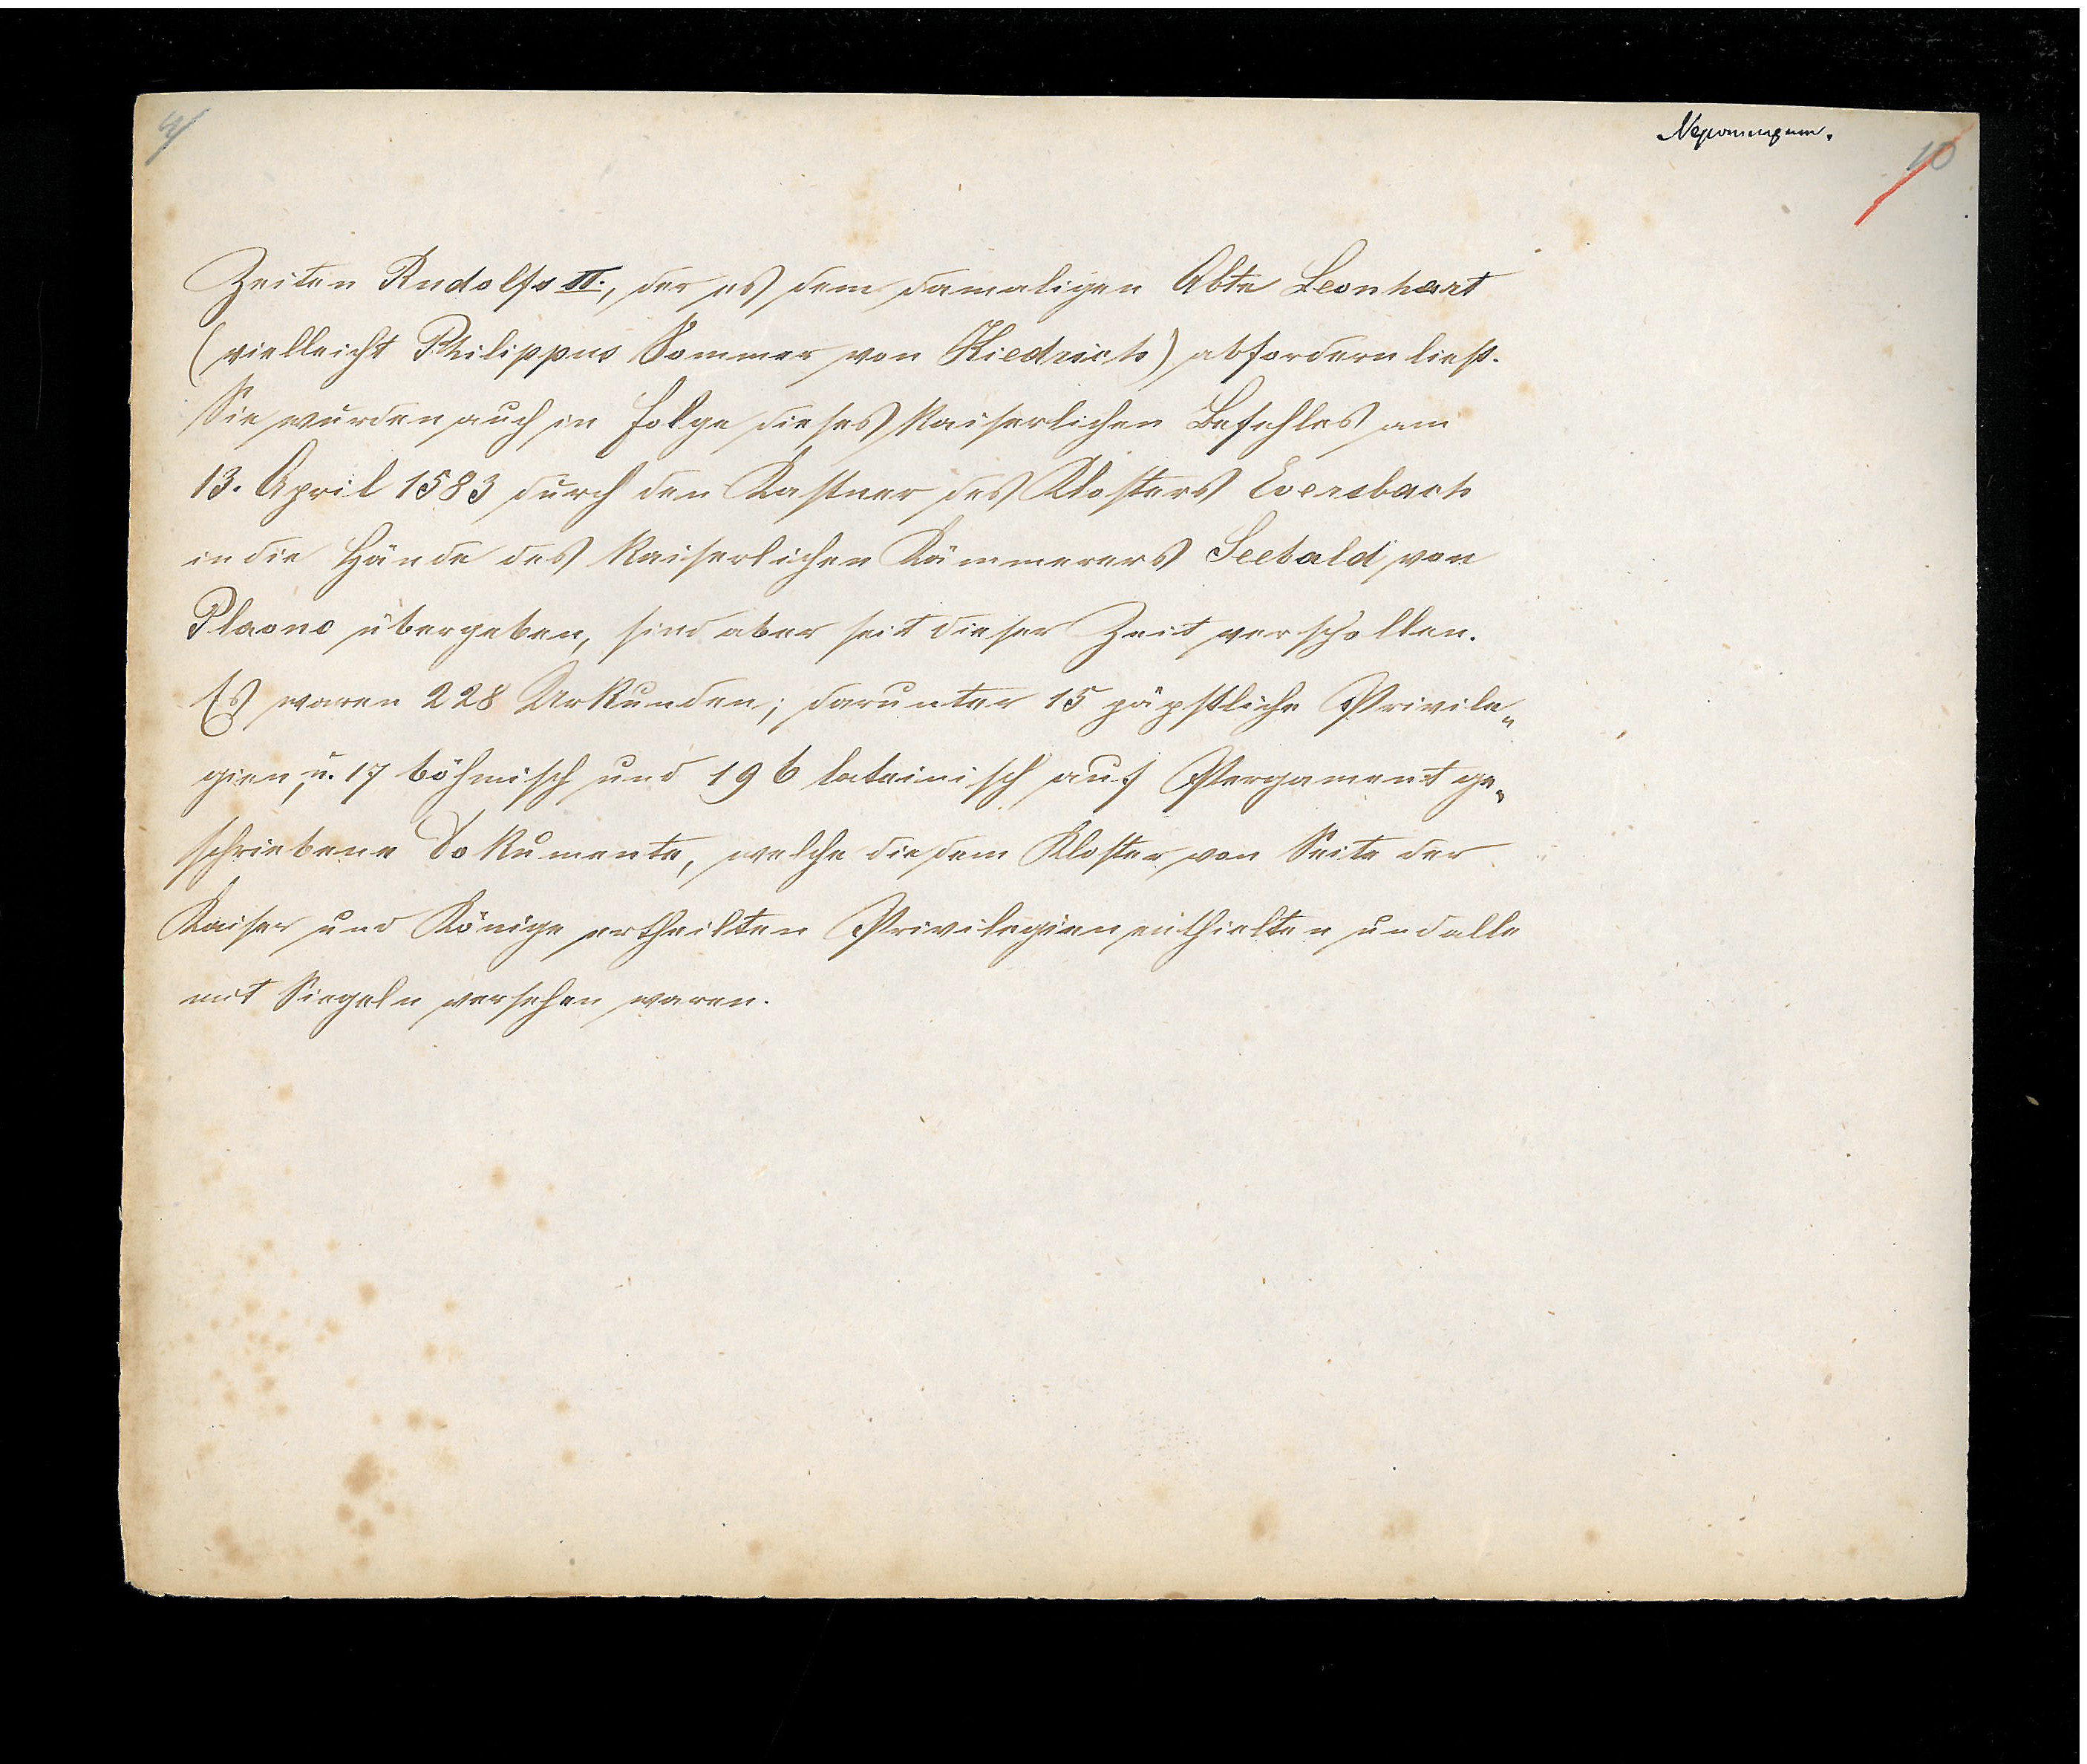 Nepomugum.
10
Zeiten Rudolfs II., der es dem damaligen Abte Leonhart
(vielleicht Philippus Sommer von Kiedrich) abfordern ließ.
Sie wurden auch in Folge dieses kaiserlichen Befehles am
13. April 1583 durch den Kastner des Klosters Eversbach
in die Hände des kaiserlichen Kämmerers Seebald von
Plaono übergeben, sind aber seit dieser Zeit verschollen.
Es waren 228 Urkunden; darunter 15 päpstliche Privile„
gien, u. 17 böhmisch und 196 lateinisch auf Pergament ge„
schriebene Dokumente, welche die dem Kloster von Seite der
Kaiser und Könige ertheilten Privilegien enthielten und alle
mit Siegeln versehen waren.